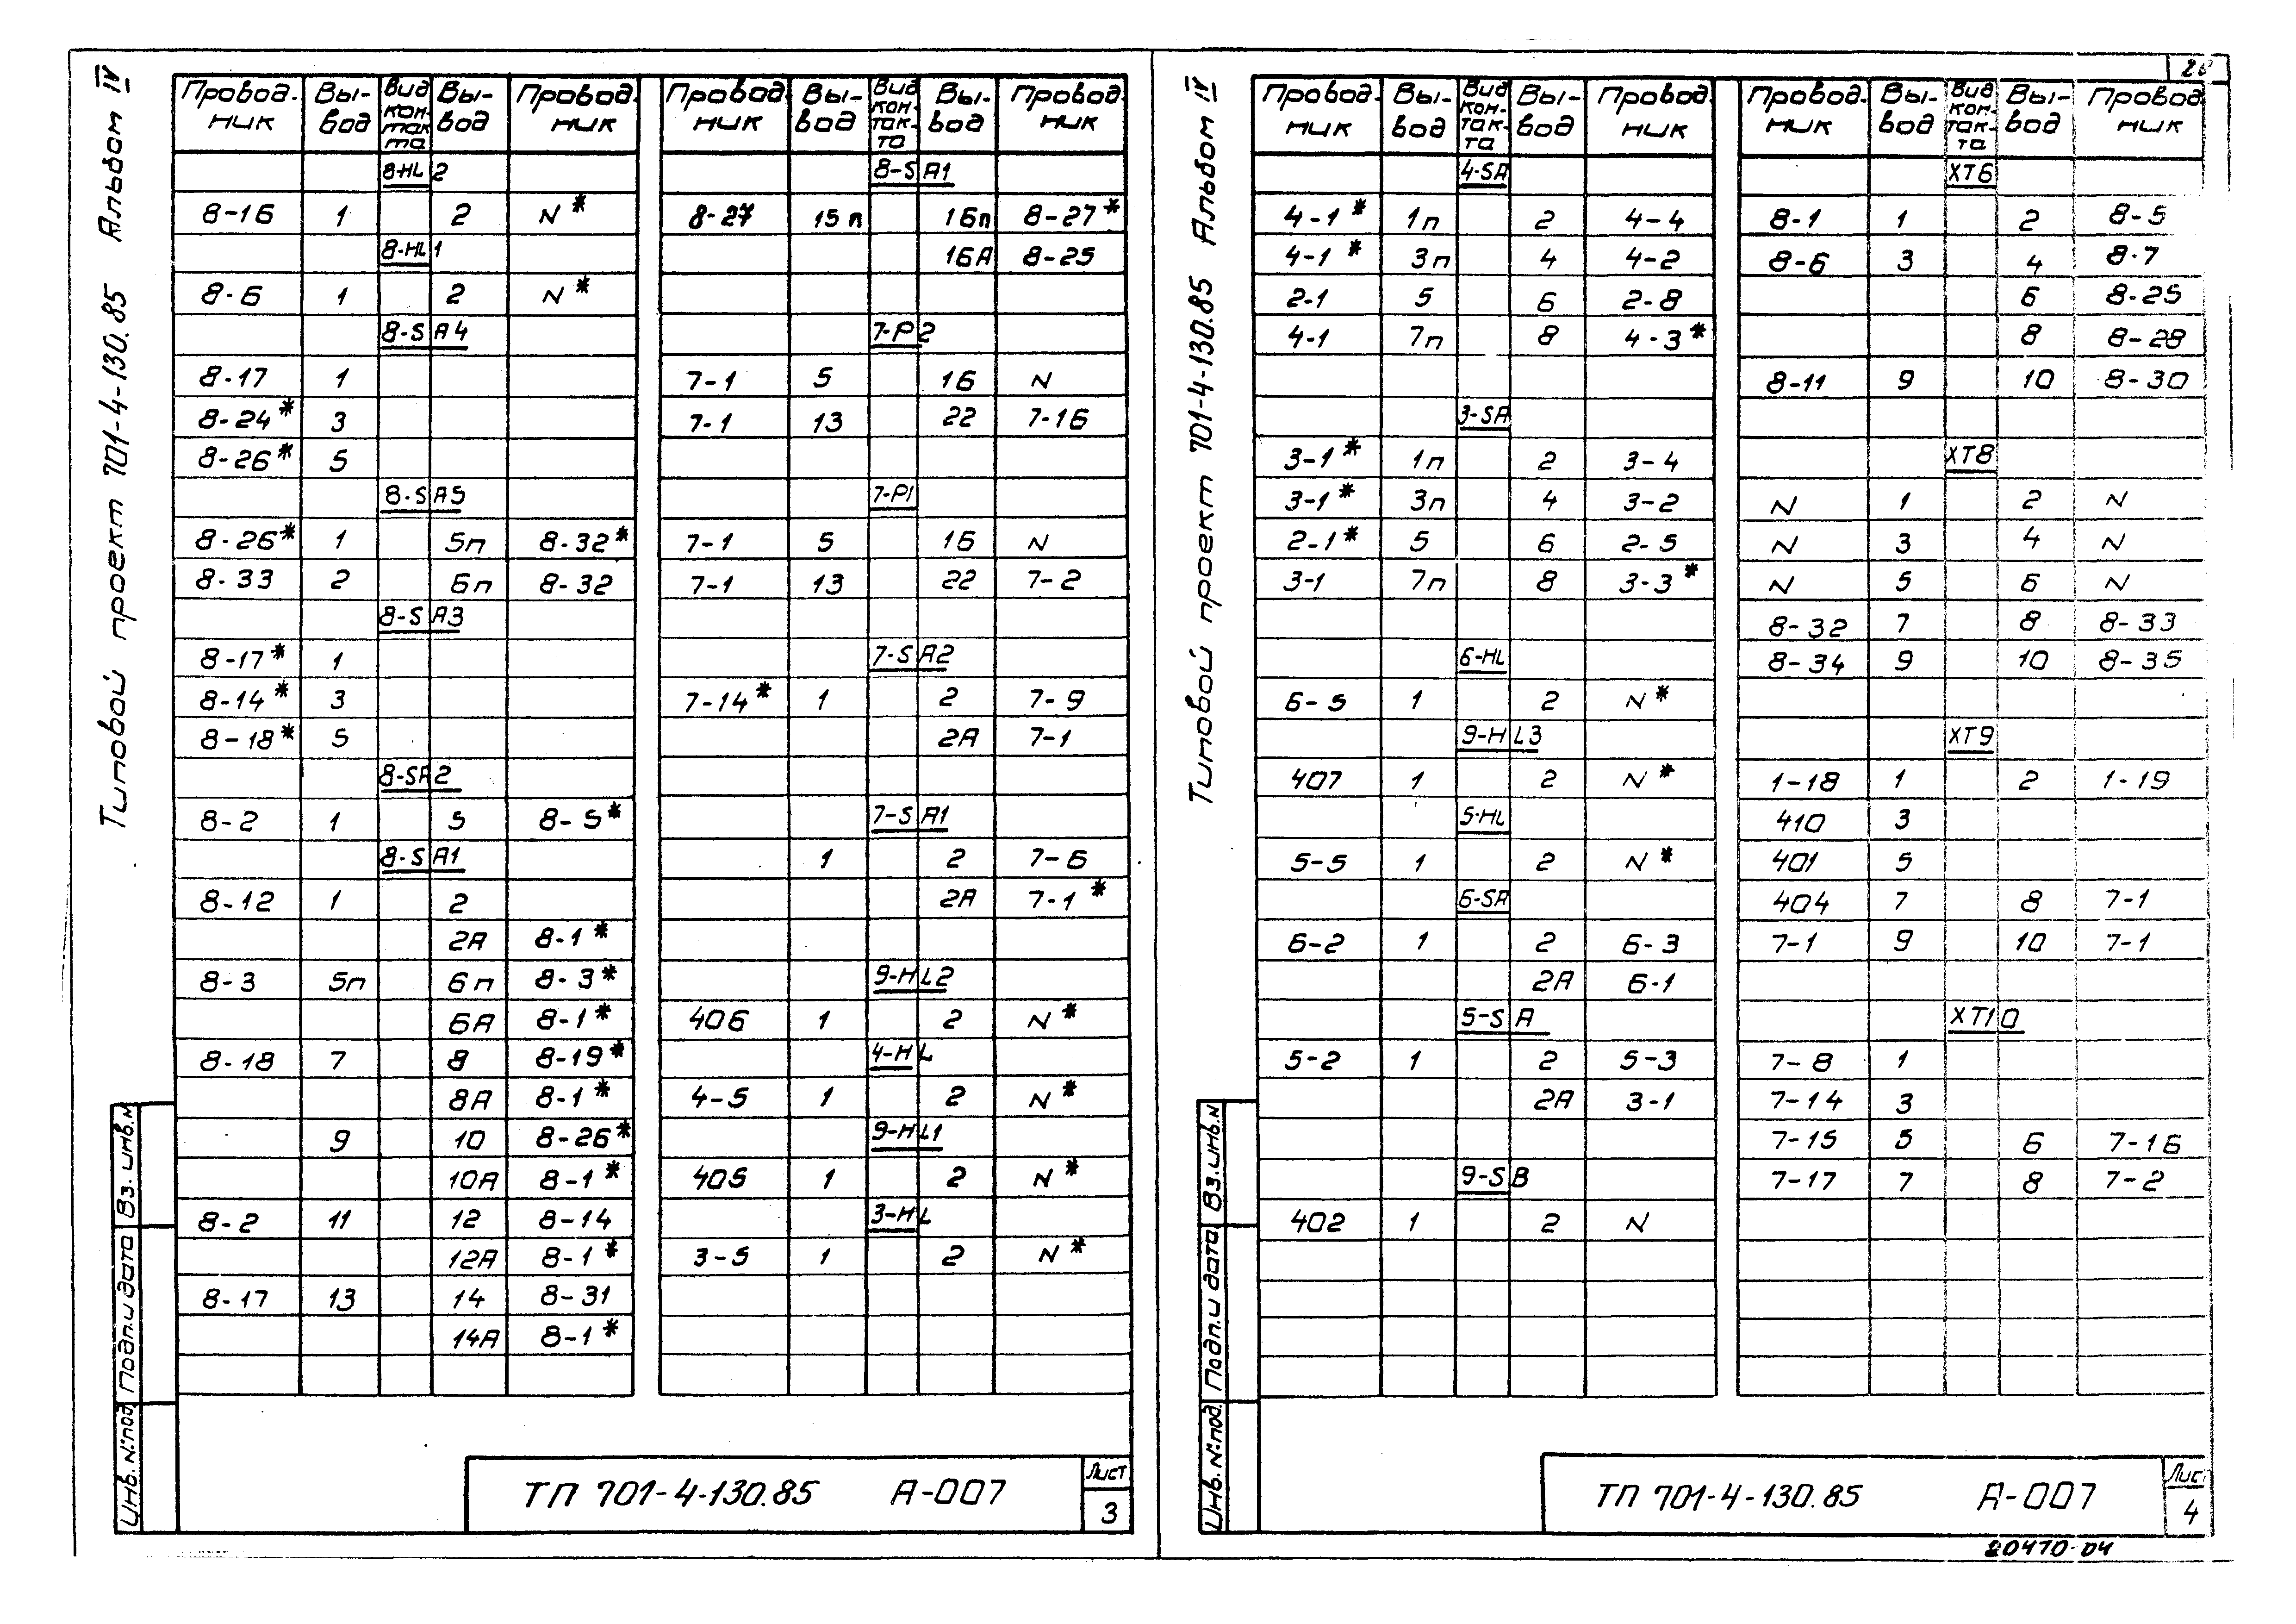 Типовой проект 701-4-130.85 Альбом IV
Провод.ник Вы-вод Вид кон-так та Вы-вод Провод.ник
8-HL2
8-16 1 2 N*
8-HL1
8-6 1 2 N*
8-SA4
8-17 1
8-24* 3
8-26* 5
8-SA5
8-26* 1 5п 8-32*
8-33 2 6п 8-32
8-SA3
8-17* 1
8-14* 3
8-18* 5
8-SA2
8-2 1 5 8-5*
8-SA1
8-12 1 2
2А 8-1*
8-3 5п 6п 8-3*
6А 8-1*
8-18 7 8 8-19*
8А 8-1*
9 10 8-26*
10А 8-1*
8-2 11 12 8-14
12А 8-1*
8-17 13 14 8-31
14А 8-1*
Провод.ник Вы-вод Вид кон-так-та Вы-вод Провод.ник
8-SA1
8-27 15п 16п 8-27*
16А 8-25
7-P2
7-1 5 16 N
7-1 13 22 7-16
7-P1
7-1 5 16 N
7-1 13 22 7-2
7-SA2
7-14* 1 2 7-9
2А 7-1
7-SA1
1 2 7-6
2А 7-1*
9-HL2
406 1 2 N*
4-HL
4-5 1 2 N*
9-HL1
405 1 2 N*
3-HL
3-5 1 2 N*
Инв.№под. Подп.и дата Вз.инв.N
ТП 701-4-130.85 А-007
Лист
3
Типовой проект 701-4-130.85 Альбом IV
Провод.ник Вы-вод Вид кон-так-та Вы-вод Провод.ник
4-SA
4-1* 1п 2 4-4
4-1* 3п 4 4-2
2-1 5 6 2-8
4-1 7п 8 4-3*
3-SA
3-1* 1п 2 3-4
3-1* 3п 4 3-2
2-1* 5 6 2-5
3-1 7п 8 3-3*
6-HL
6-5 1 2 N*
9-HL3
407 1 2 N*
5-HL
5-5 1 2 N*
6-SA
6-2 1 2 6-3
2А 6-1
5-SA
5-2 1 2 5-3
2А 3-1
9-SB
402 1 2 N
Провод.ник Вы-вод Вид кон-так-та Вы-вод Провод.ник
XT6
8-1 1 2 8-5
8-6 3 4 8-7
6 8-25
8 8-28
8-11 9 10 8-30
XT8
N 1 2 N
N 3 4 N
N 5 6 N
8-32 7 8 8-33
8-34 9 10 8-35
XT9
1-18 1 2 1-19
410 3
401 5
404 7 8 7-1
7-1 9 10 7-1
XT10
7-8 1
7-14 3
7-15 5 6 7-16
7-17 7 8 7-2
Инв.№под. Подп.и дата Вз.инв.N
ТП 701-4-130.85 А-007
Лис
4
20470-04